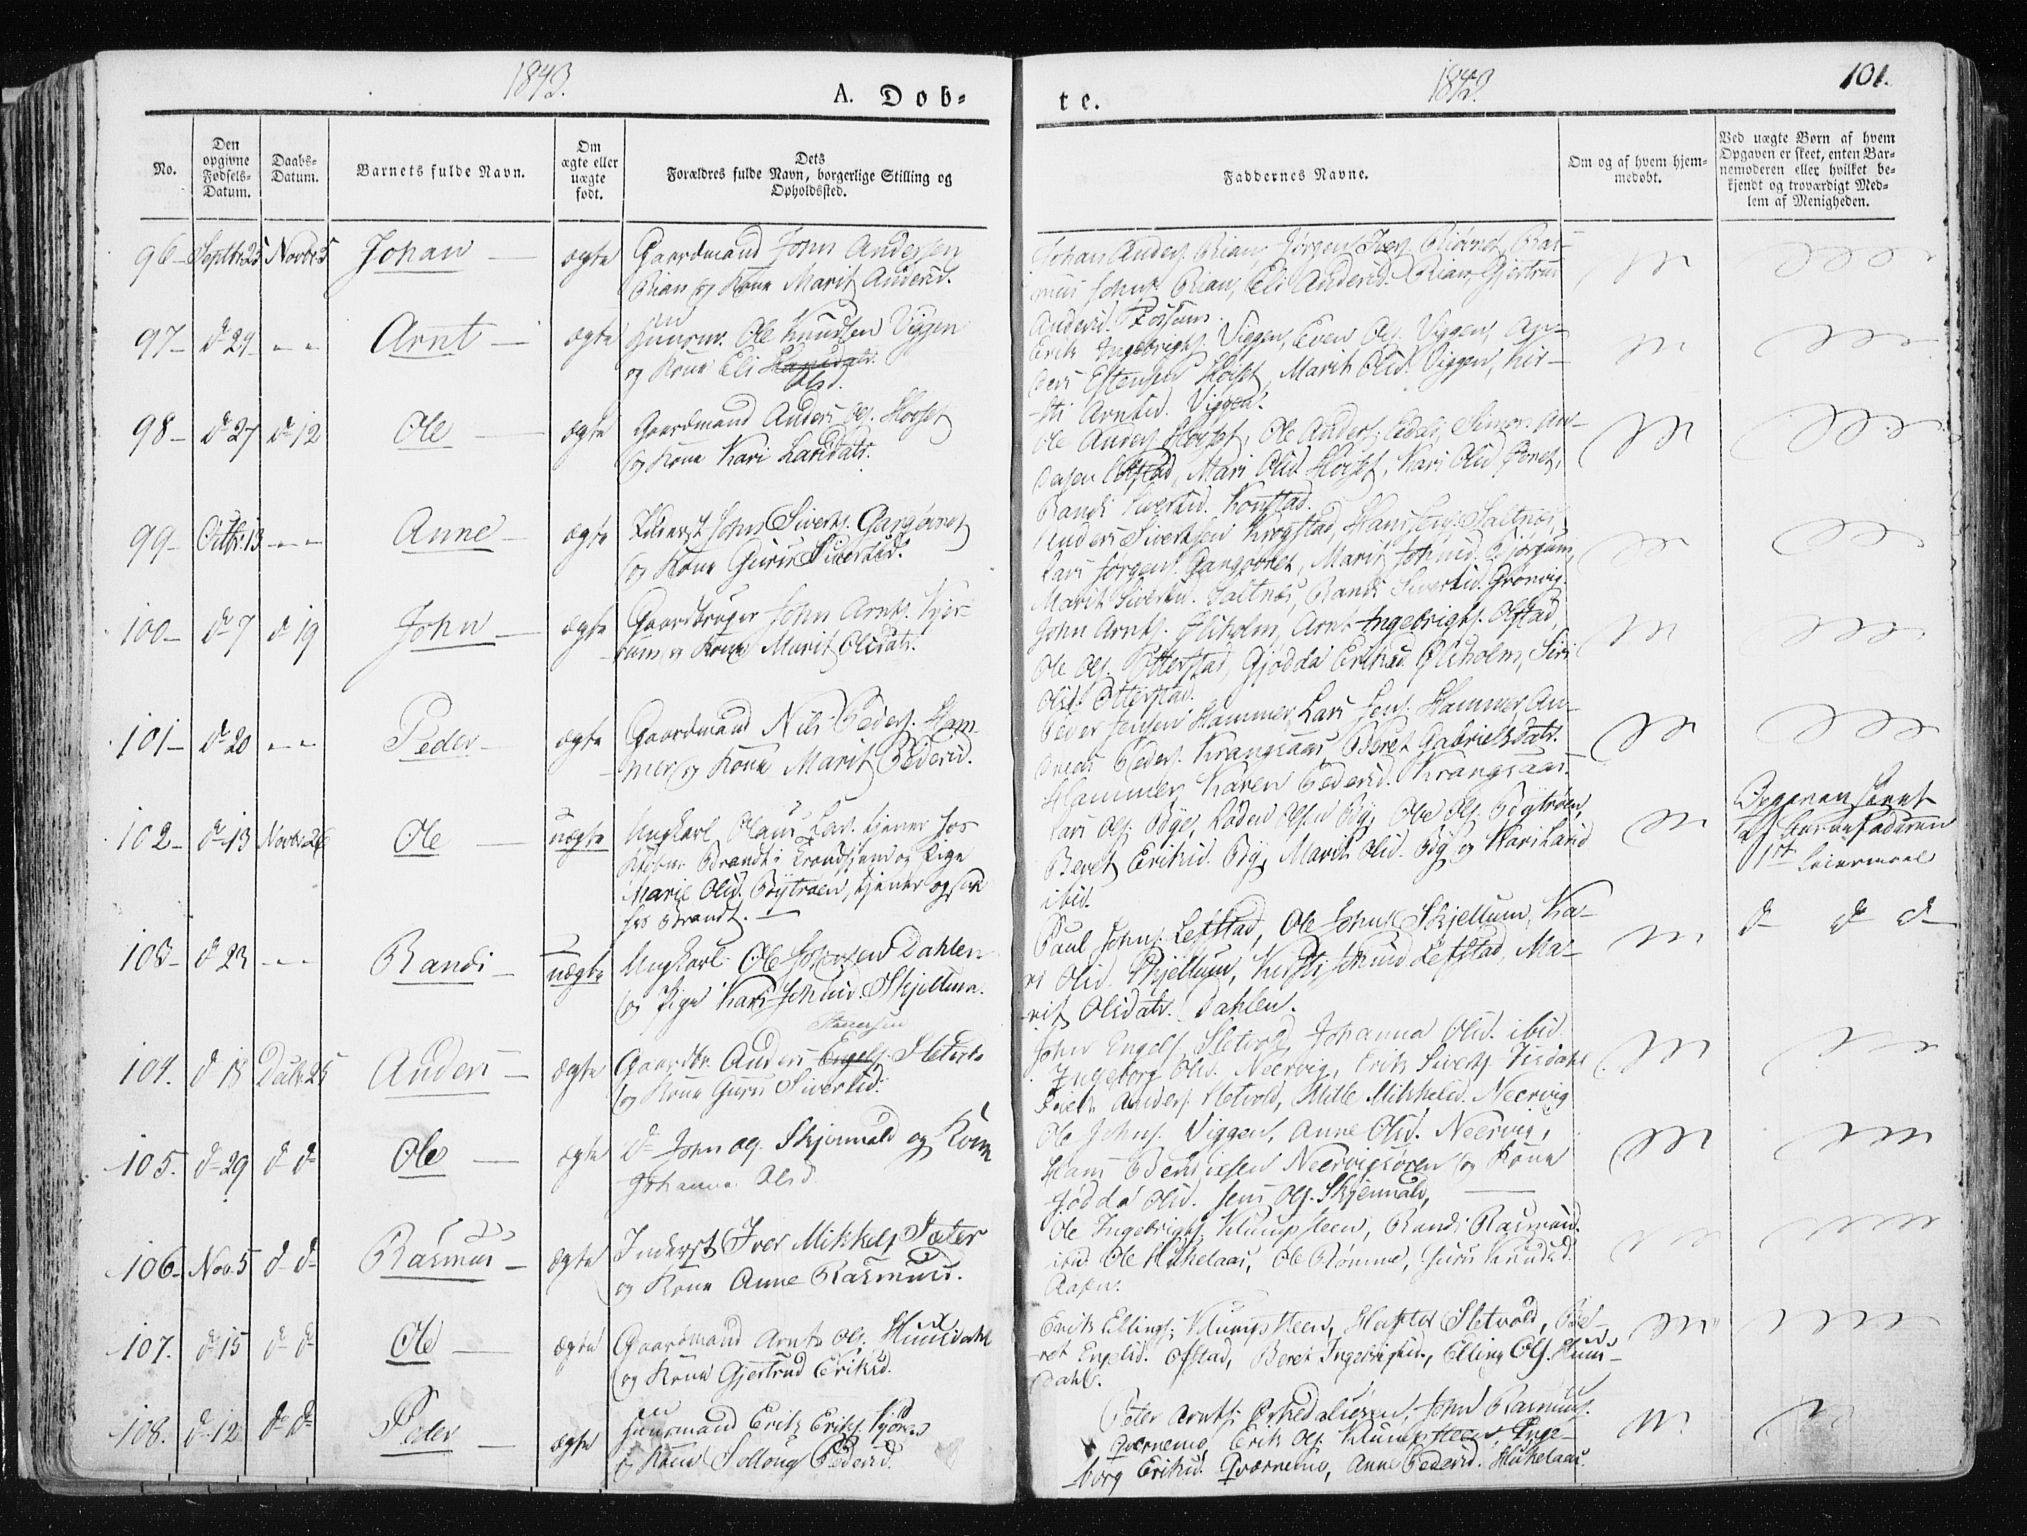 1843.
A. Dob-
te.
1843.
101.
No.
Den opgivne Fødsels-Datum.
Daabs-Datum.
Barnets fulde Navn.
Om ægte eller uægte født.
Dets Forældres fulde Navn, borgerlige Stilling og Opholdssted.
Faddernes Navne.
Om og af hvem hjem-
medøbt.
Ved uægte Børn af hvem
Opgaven er skeet, enten Bar-
nemoderen eller hvilket be-
kjendt og troværdigt Med-
lem af Menigheden.
96 Septbr 25 Novbr 5 Johan ægte Gaardmand John Andersen
Rian og Kone Marit Andersd.
Johan Anders. Rian, Jørgen Ivers. Ras-
mus Johns. Rian, Eli Andersd. Rian, Gjertrud
Andersd. Fossum.
97 d 29 " " Arnt ægte Huusm. Ole Knudsen Viggen
og Kone Eli Olsd.
Erik Ingebrigts. Viggen, Even Ols. Viggen, An-
ders Estensen Hofset, Marit Olsd. Viggen, Kir-
sti Arntsd. Viggen.
98 d 27 d 12 Ole ægte Gaardmand Anders Ols. Hofset
og Kone Kari Larsdatr.
Ole Anders. Hofset, Ole Anders. Simon An-
dersen Olstad, Mari Olsd. Hofset, Kari Olsd.
Randi Sivertsd. Kongstad.
99 Octbr. 13 " " Anne ægte Inderst John Siverts. Gangovnet
og Kone Guru Sivertsd.
Anders Sivertsen Krogstad, Hans Saltnes,
Lars Jørgens. Gangovnet, Marit Johnsd.
Marit Sivertsd. Saltnes, Randi Sivertsd. Grønvig.
100 d 7 d 19 John ægte Gaardbruger John Arnts. Kjer-
og Kone Marit Olsdatr.
John Arnts. Øleholm, Arnt Ingebrigts. Olstad,
Ole Ols. Otterstad, Gjødda Eriksd. Øleholm, Siri
Olsd. Otterstad.
101 d 20 " " Peder ægte Gaardmand Nils Peders. Ham-
mer og Kone Marit Pedersd.
Peder Jensen Hammer, Lars Jens. Hammer, An-
dreas Peders. Krangsaas, Beret Gabrielsdatr.
Hammer, Karen Pedersd. Krangsaas.
102 d 13 Novbr 26 Ole uægte Ungkarl Olaus Lars. tjener hos
Brandt i Trondhjem og Pige
Marie Olsd. Bytrøen, tjener også
hos Brandt.
Lars Ols. Bye, Loden Olsen By, Ole Ols. Bytrøen,
Beret Eriksd. By, Marit Olsd. By og Kari Larsd
ibid.
Opgaven skeet
af Barnefaderen
1st Leiermaal
103 d 23 " " Randi uægte Ungkarl Ole Johnsen Dahlen
og Pige Kari Johnsd. Skjellum.
Paul Johns. Lefstad, Ole Johns. Skjellum, Ka-
ri Olsd. Skjellum, Kirsti Johnsd. Lefstad, Ma-
rit Olsdatr. Dahlen.
d d d
104. d 18 Decbr. 25 Anders ægte Gaardbr. Anders Engels. Sletvold
og Kone Guru Sivertsd.
John Engels. Sletvold, Johanna Olsd. ibid.
Ingeborg Olsd. Neervig, Erik Siverts.
Anders. Sletvold, Mille Mikkelsd. Neervig
105. d 29 d d Ole ægte d John Ols. Skjenvald og Kone
Johanna Olsd.
Ole Johns. Viggen, Anne Olsd. Neervig,
Hans Bendixsen Neervigsøren og Kone
Gjødda Olsd. Jens Ols. Skjenvald,
106 Nov. 5 d d Rasmus ægte Inderst Iver Mikkels. Sæter
og Kone Anne Rasmusd.
Ole Ingebrigts. Klumpsteen, Randi Rasmusd.
ibid. Ole Hukelaas, Ole Rømme, Guru Knudsd.
107. d 15 d d Ole ægte Gaardmand Arnt Ols. Huusdahl
og Kone Gjertrud Eriksd.
Erik Ellings. Klumpsteen, Sletvold, Be-
ret Engelsd. Ofstad, Beret Ingebrigtsd., Elling Ols. Huus-
dahl.
108. d 12 d d Peder ægte Huusmand Erik Eriks.
og Kone Solloug Pedersd.
Peter Arnts. Orkedalsøren, John Rasmus.
Qværnemo, Erik Ols. Klumpsteen, Inge-
borg Eriksd. Qværnemo, Anne Pedersd. Hukelaas.